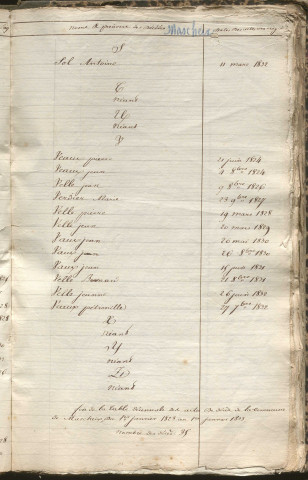 noms & prénoms Mascheix
S
Sol Antoine 11 mars 1832
T
néant
U
néant
V
Veaux pierre 21 juin 1824
Veaux jean 4 8bre 1824
Velle jean 9 8bre 1826
Verdier Marie 13 9bre 1827
Velle pierre 19 mars 1828
Velle jean 20 mars 1829
Vaux jean 20 mai 1830
Vaux jean 26 8bre 1830
Vaux jean 15 juin 1831
Velle 21 8bre 1831
Velle jeanne 26 juin 1830
Vaux petronille 27 7bre 1831
X
néant
Y
néant
Z
néant
fin de la table décennale des actes de décès de la commune
de du 1er janvier 1823 au 1er janvier 1833
nombre des décès 38